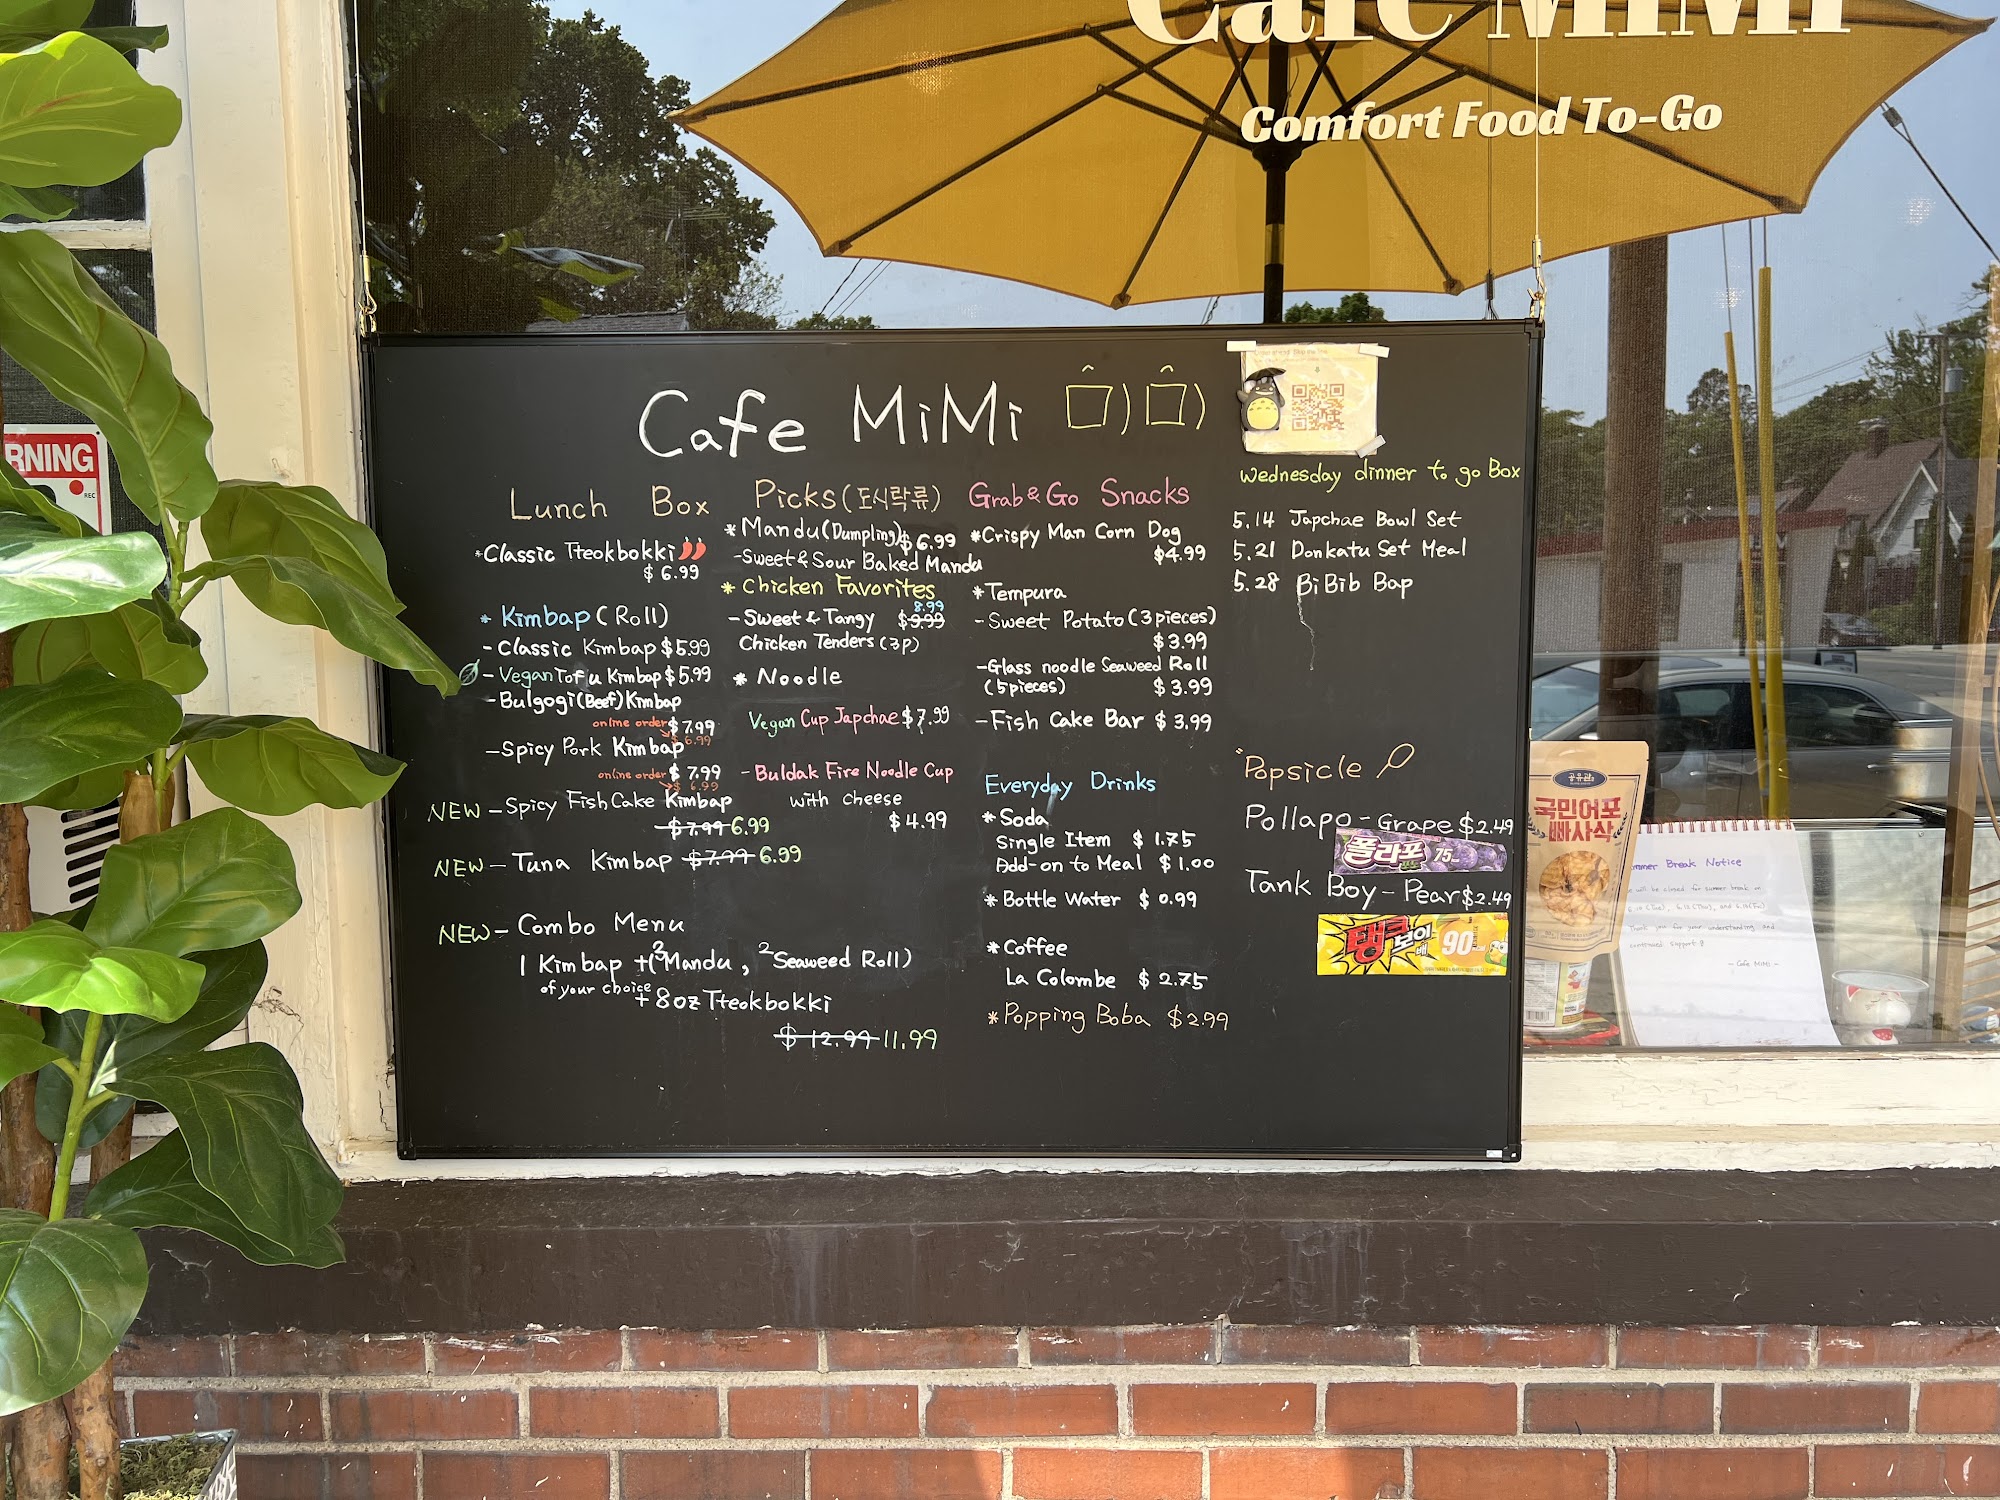 Cafe MiMi
Comfort Food To-Go
RNING
REC
Cafe MiMi
Lunch Box Picks (도시락류)
*Classic Tteokbokki
$6.99
* Kimbap (Roll)
- Classic Kimbap $5.99
- Vegan Tofu Kimbap $5.99
- Bulgogi (Beef) Kimbap
online order $7.99
$6.99
- Spicy Pork Kimbap
online order $7.99
$6.99
NEW - Spicy Fish Cake Kimbap
$7.99 6.99
NEW - Tuna Kimbap $7.99 6.99
NEW - Combo Menu
1 Kimbap + (3 Mandu, 2 Seaweed Roll)
of your choice
+ 8oz Tteokbokki
$12.99 11.99
* Mandu (Dumpling) $6.99
- Sweet & Sour Baked Mandu
* Chicken Favorites
8.99
- Sweet & Tangy $9.99
Chicken Tenders (3p)
* Noodle
Vegan Cup Japchae $7.99
- Buldak Fire Noodle Cup
with cheese
$4.99
Grab & Go Snacks
*Crispy Man Corn Dog
$4.99
*Tempura
- Sweet Potato (3 pieces)
$3.99
- Glass noodle Seaweed Roll
(5 pieces) $3.99
- Fish Cake Bar $3.99
Everyday Drinks
* Soda
Single Item $1.75
Add-on to Meal $1.00
* Bottle Water $0.99
* Coffee
La Colombe $2.75
* Popping Boba $2.99
Wednesday dinner to go Box
5.14 Japchae Bowl Set
5.21 Donkatu Set Meal
5.28 BiBib Bap
Popsicle
Pollapo - Grape $2.49
폴라포 75
Tank Boy - Pear $2.49
탱크보이 배 90
공유관
국민어포
빠사삭
mmer Break Notice
will be closed for summer break on
Thank you for your understanding and
continued support
- Cafe MiMi -